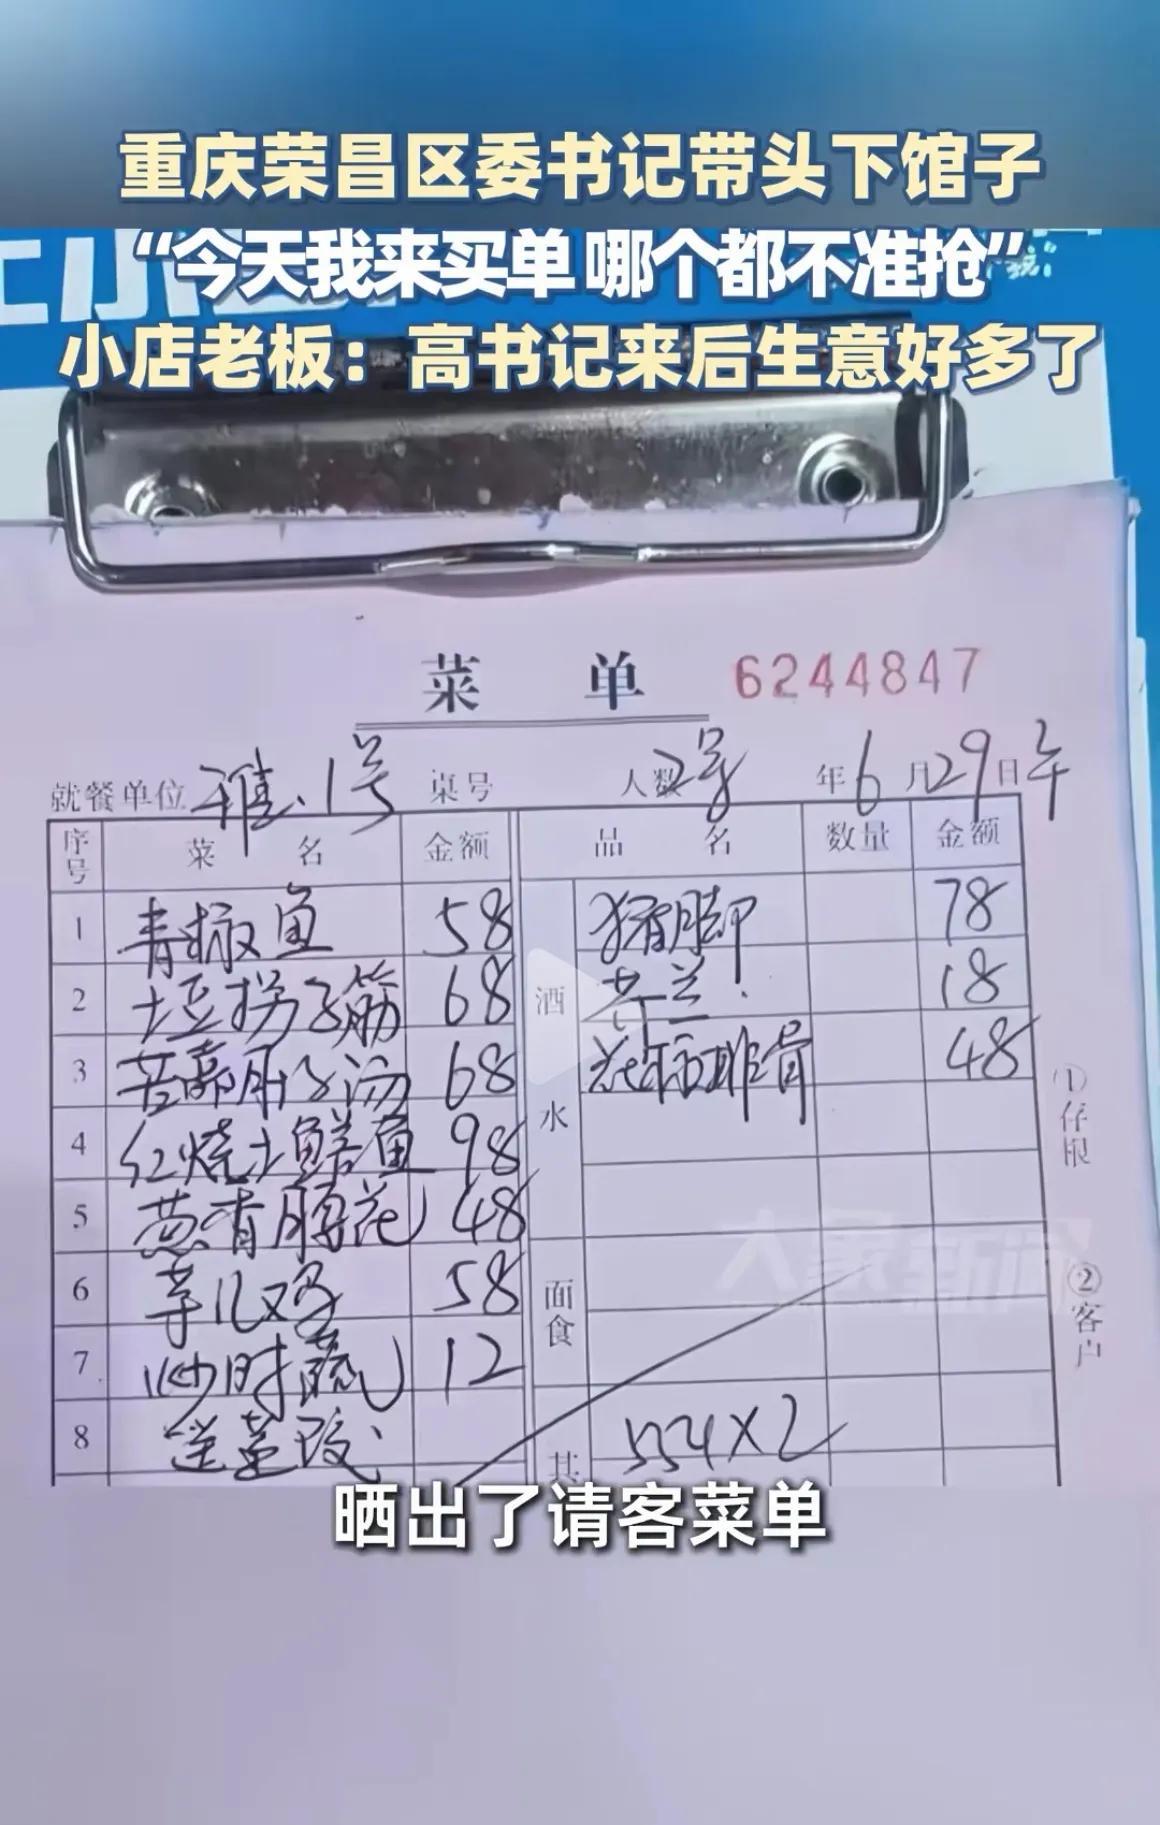 重庆荣昌区委书记带头下馆子
“今天我来买单 哪个都不准抢”
小店老板：高书记来后生意好多了
菜 单 6244847
就餐单位 雅、1号 桌号 人数 2号 年 6 月 29 日 午
序号 菜 名 金额 品 名 数量 金额
1 青椒鱼 58 猪脚 78
2 土豆拐子筋 68 酒 18
3 68 排骨 48
4 红烧土鳝鱼 98 水
5 葱香腰花 48
6 芋儿鸡 58 面食
7 炒时蔬 12
8 554×2
共
①存根
②客户
大象新闻
晒出了请客菜单